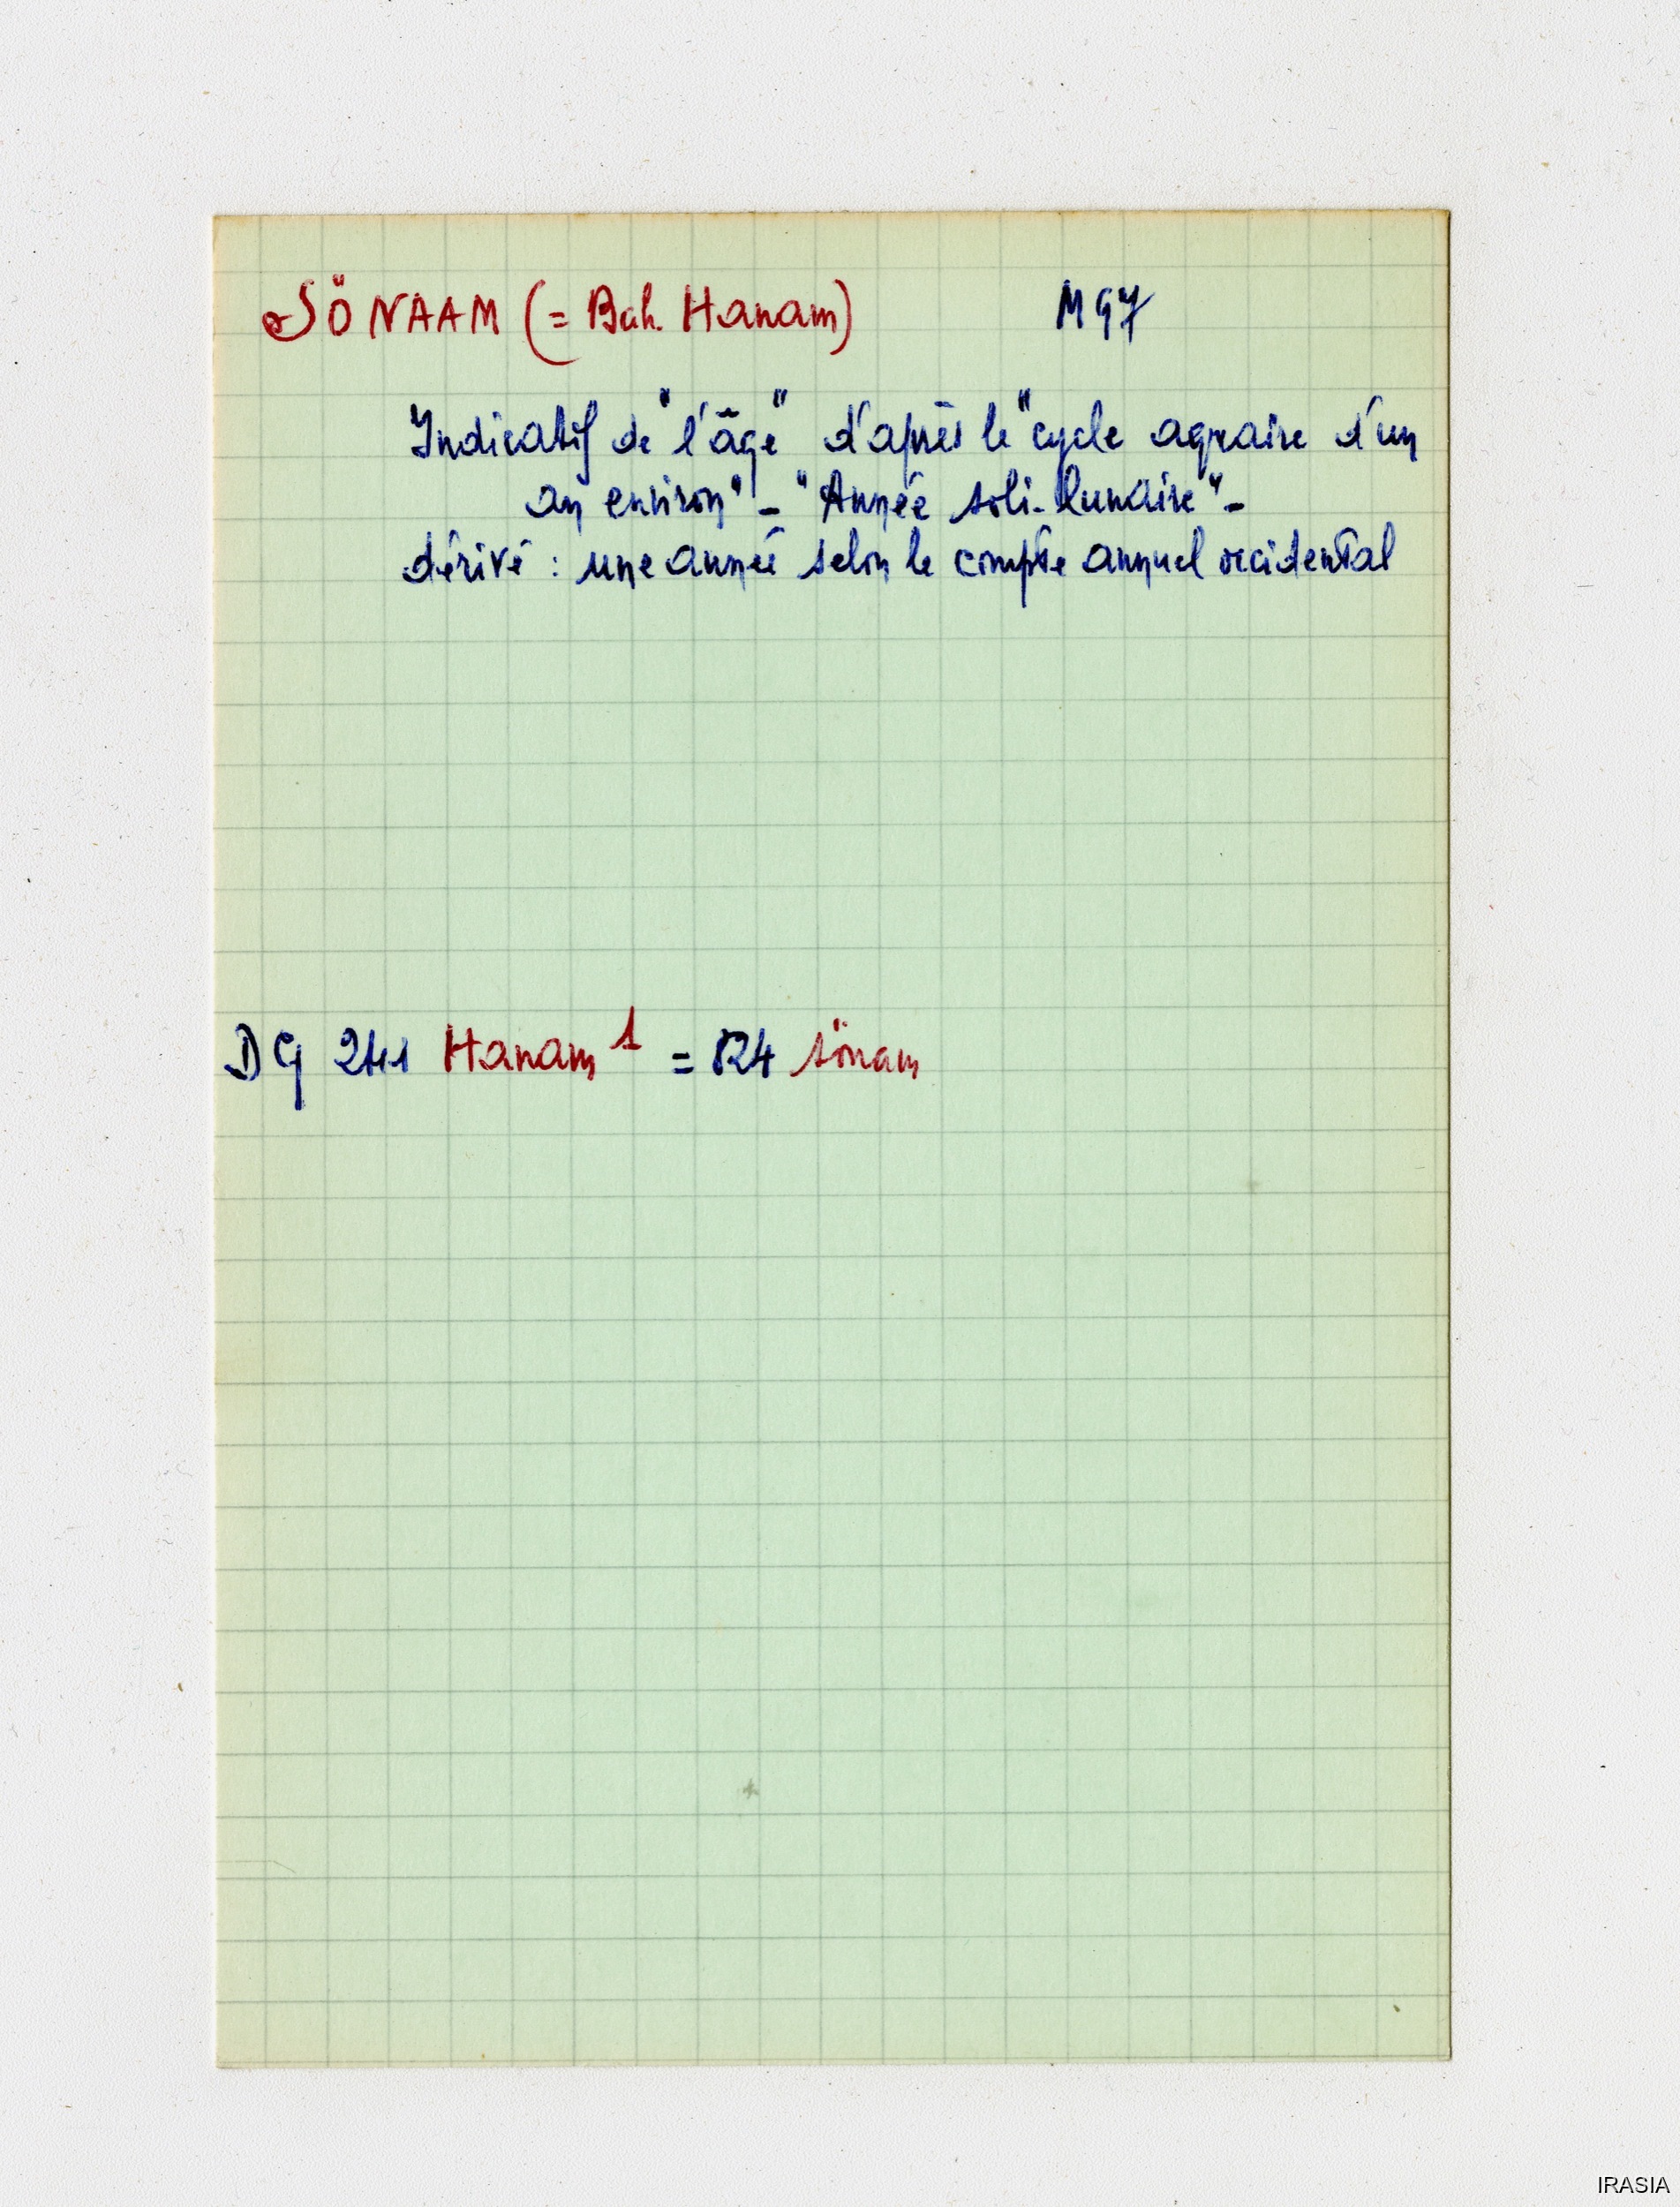 SÖNAAM (= Bah. Hanam) M 97
Indicatif de "l'âge" d'après le "cycle agraire d'un
an environ" - "Année soli-lunaire" -
dérivé : une année selon le compte annuel occidental
DG 241 Hanam 1 = 824 sönam
IRASIA